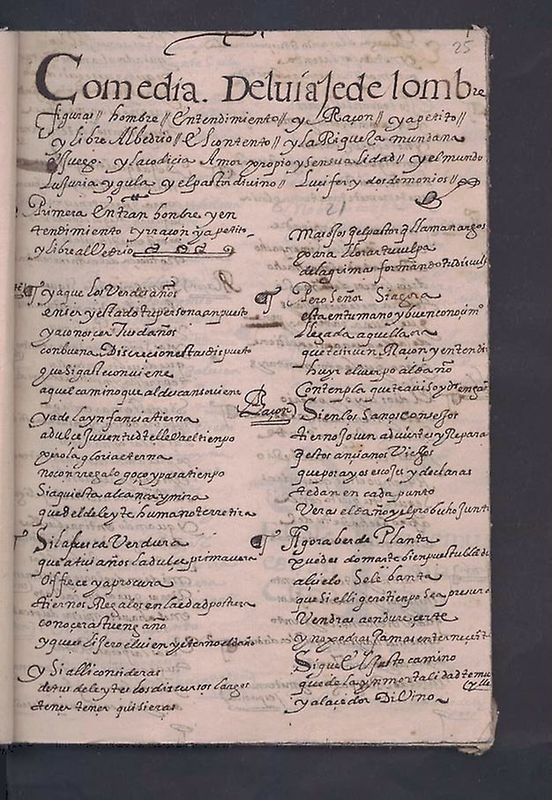 25
Comedia. Del uiaJe de lombre
figuras // hombre // Entendimiento // y el Raçon // y apetito //
y libre Albedrio // El contento // y la Riqueza mundana
Juego. y la codiçia Amor propio y sensualidad // y el mundo
Luxuria y gula y el pastor diuino // Lucifer y dos demonios //
Primera Entran hombre y en
tendimiento y rraçon y apetito
y libre alVedrio
ya que los Verdes años
en ser y estado tu persona an puesto
y a conoscer tus daños
con buena Discrecion estas dispuesto
que sigas conuiene
aquel camino que al descanso uiene
ya de la ynfancia tierna
a dulce juuentud te lleua el tiempo
pero la gloria eterna
no con rregalo goço y pasatiempo
Si aqui esta alcança y mira
que del deleyte humano te rretira
Si la fresca Verdura
que a tus años la dulce primauera
Offrece y a procura
tiernos Regalos en la edad postrera
conoceras tu engaño
y que es ligero el uien y eterno el daño
y Si alli consideras
de tus deleytes los discursos largos
tener quisieras
Mas ojos q el pastor q llaman argos
para llorar tu culpa
de lagrimas formando tu disculp
Pero Señor Si agora
esta en tu mano y buen conoçim
llegada aquella ora
que te siruen Raçon y entendi
huye el cuerpo al daño
Contempla que te auiso y
Raçon
Si en los Sanos consejos
tierno jouen aduiertes y Repara
q estos ancianos Viejos
que por ayos escojes y declaras
te dan en cada punto
Veras el daño y el probecho junto
Agora berde Planta
puedes domarte bien pues tu
al cielo Solo
que Si el ligero tiempo se apresura
Vendras a endurecerte
y no podras Jamas enternecert
Sigue El justo camino
que de la ynmortalidad
y alacedor DiVino